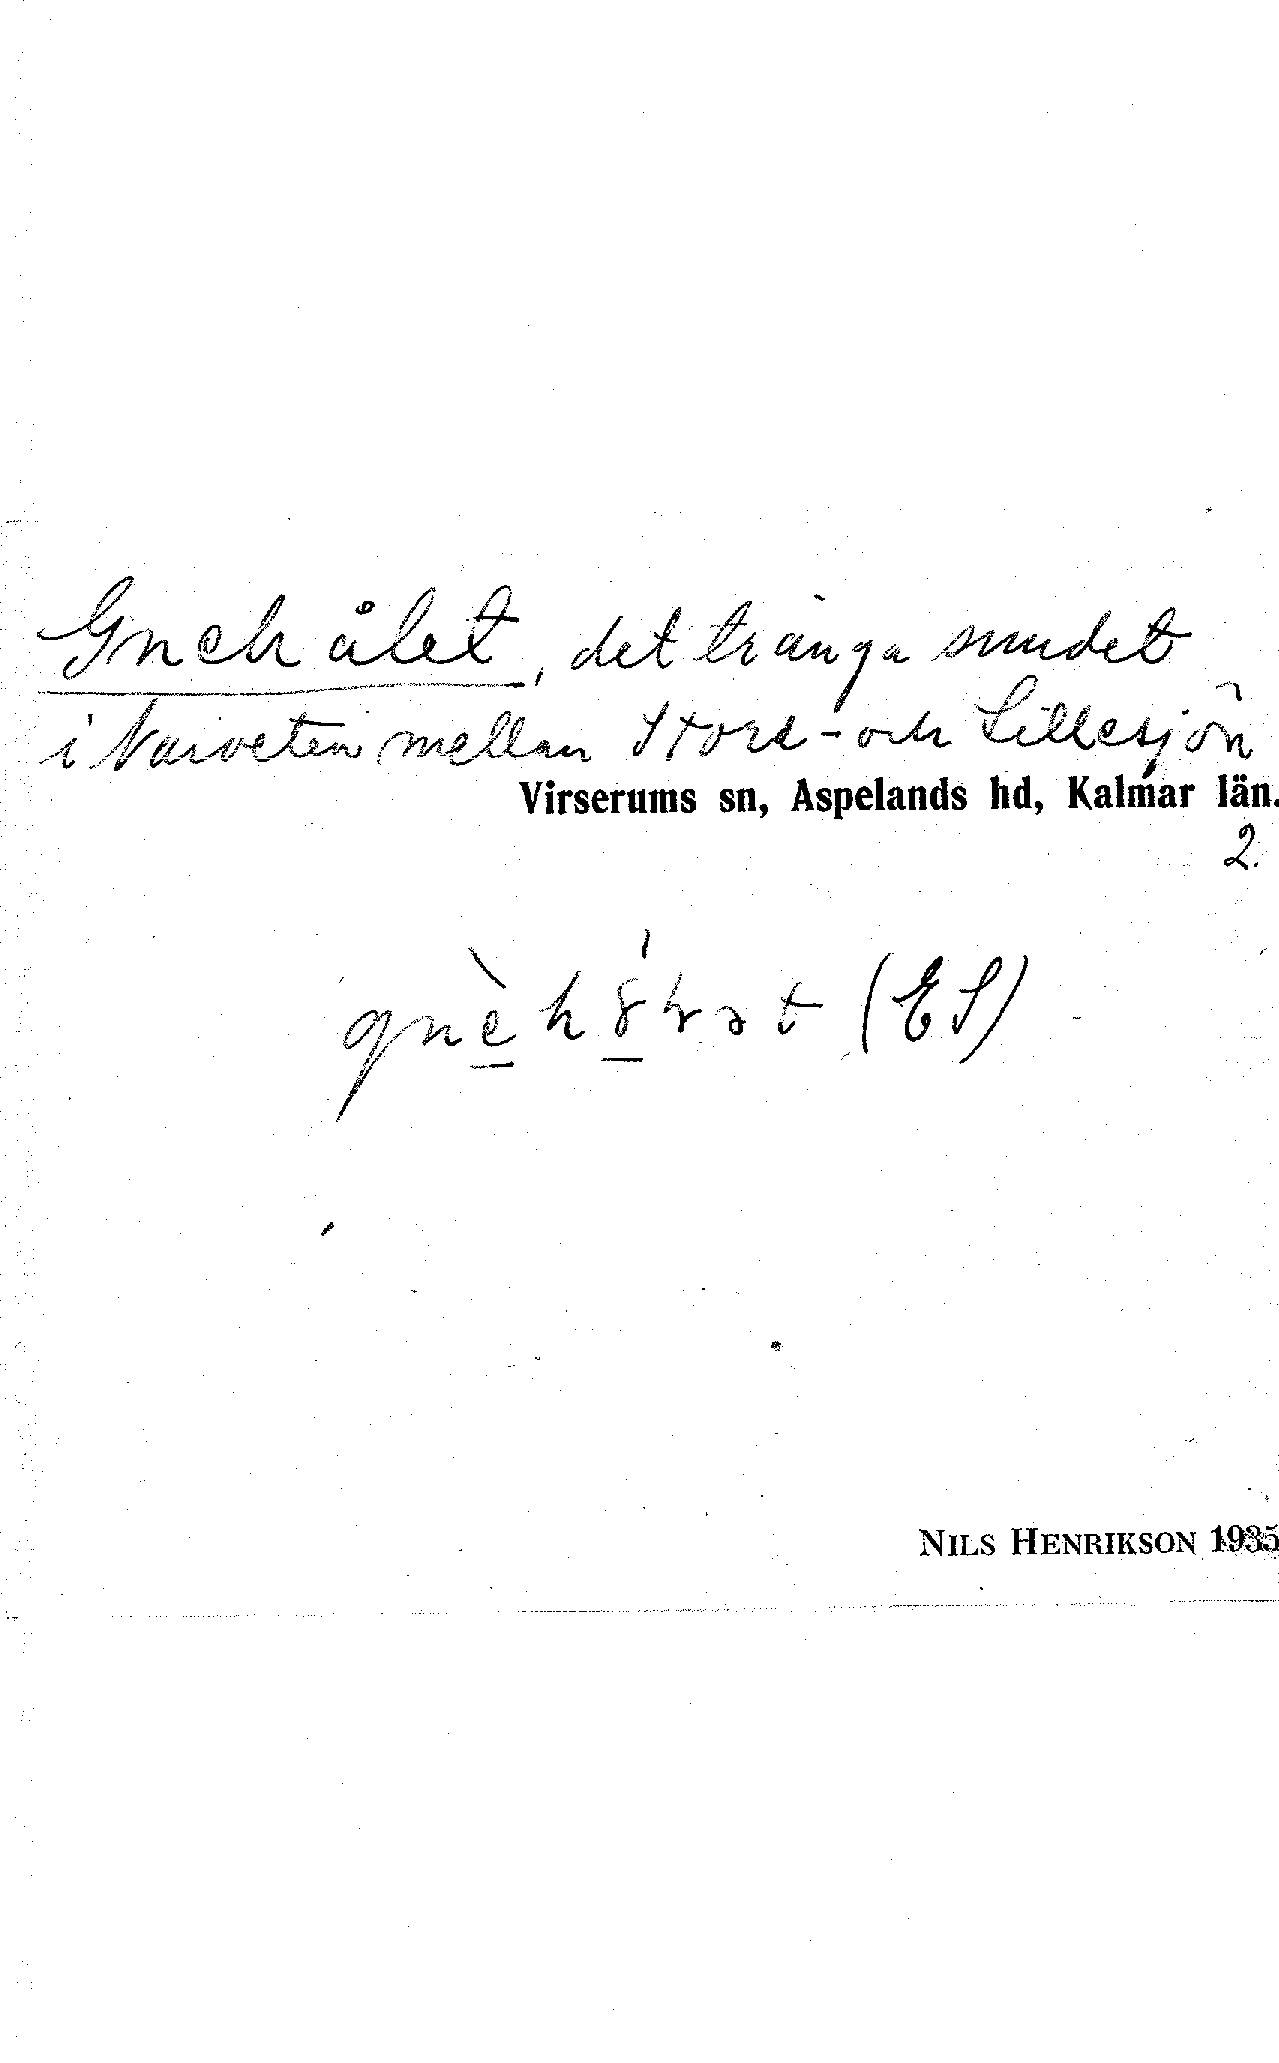 Gnehålet, det trånga sundet
i Narveten mellan Store- och Lillesjön
Virserums sn, Aspelands hd, Kalmar län.
2.
(ES)
NILS HENRIKSON 1935